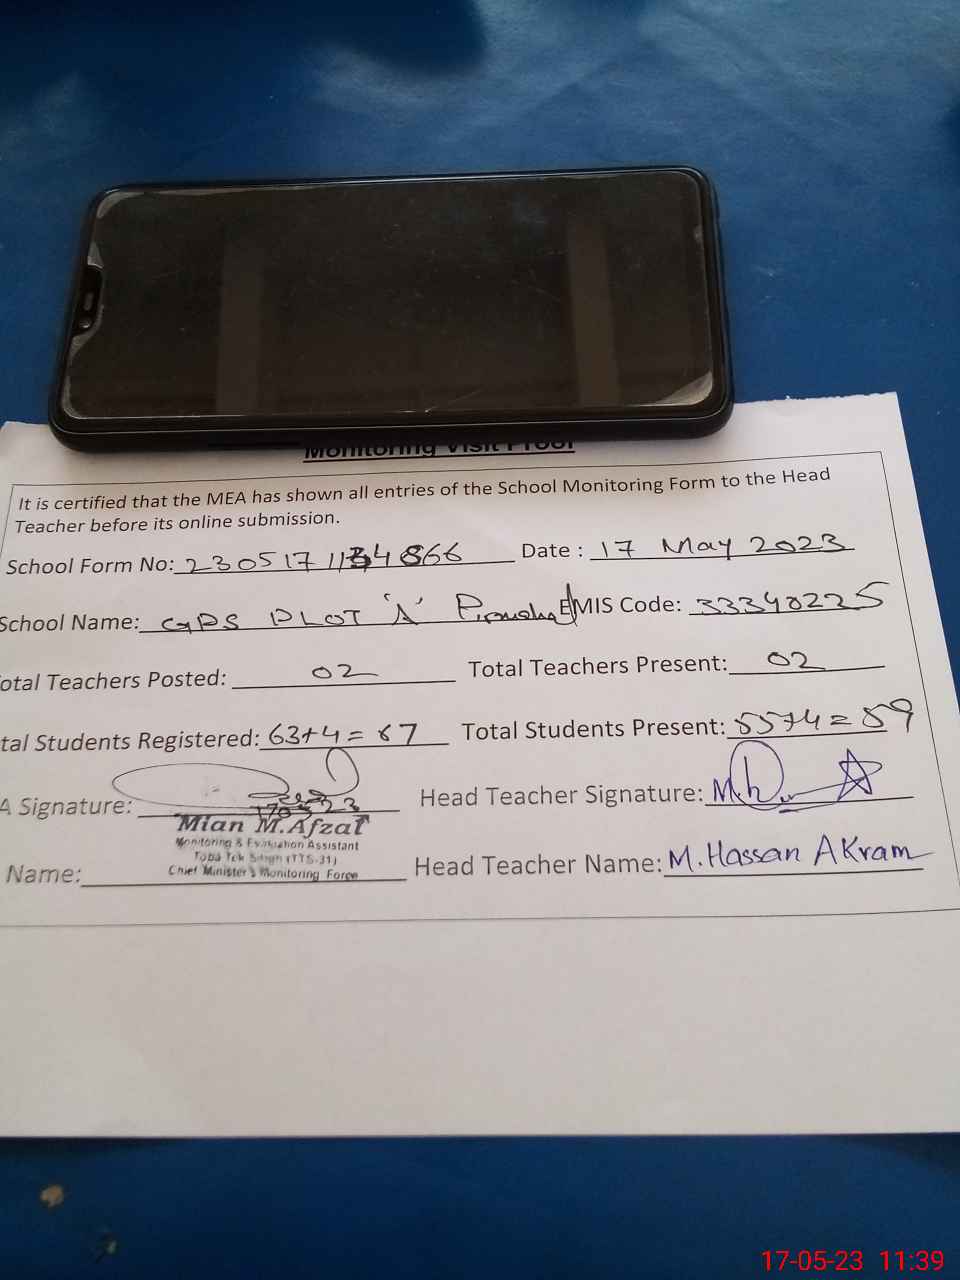 Monitoring Visit Proof
It is certified that the MEA has shown all entries of the School Monitoring Form to the Head
Teacher before its online submission.
School Form No: Date : 17 May 2023
School Name: GPS PLOT 'A' EMIS Code: 33340225
otal Teachers Posted: 02 Total Teachers Present: 02
tal Students Registered: 63+4= 67 Total Students Present: 55+4= 59
A Signature: Head Teacher Signature:
Mian M.Afzal
Monitoring & Evaluation Assistant
Toba Tek Singh (TTS-31)
Chief Minister's Monitoring Force
Name: Head Teacher Name: M.Hassan AKram
17-05-23 11:39